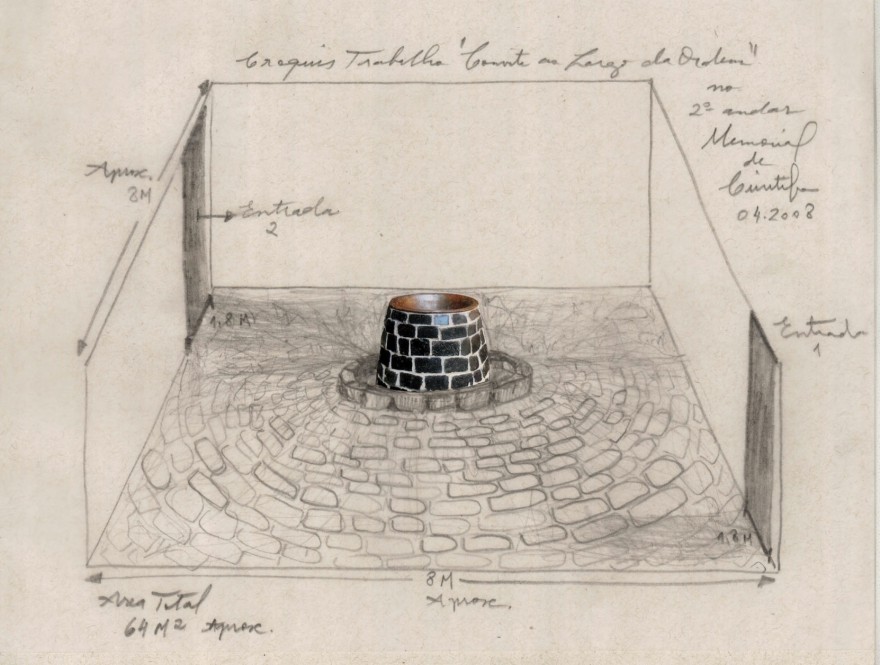 Croquis Trabalho "Convite ao Largo da Ordem"
no
2º andar
Memorial
de
Curitiba
04.2008
Aprox.
8M
Entrada
2
1,8 M
Entrada
1
1,8 M
8M
Aprox.
Area Total
64 M2 Aprox.